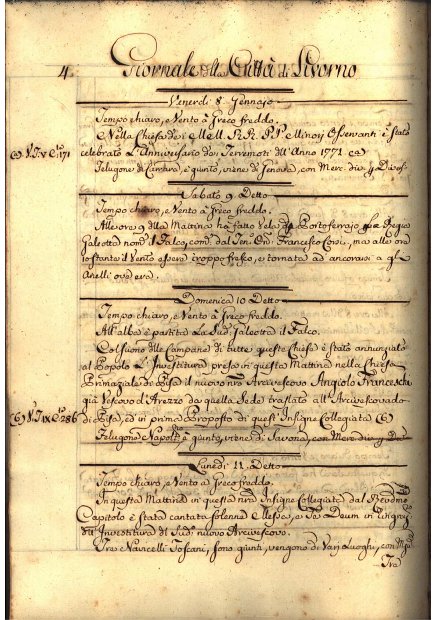 4. Giornale della Città di Livorno
Venerdì 8 Gennajo
Tempo chiaro, e Vento à Greco freddo.
Nella Chiesa de i M.M. R.R. P.P. Minori Osservanti è stato
(a) V. T. V C.te 171
celebrato L'Anniversario de i Terremoti dell'Anno 1771 (a)
Felugone di Carrara, è giunto, viene di Genova, con Merc. div.e
Sabato 9. Detto
Tempo chiaro, e Vento à Greco freddo.
Alle ore 9 della Mattina hà fatto Vela p. Portoferrajo la Regia
Galeotta nom.a il Falco, com. dal Ten. On. Francesco Coni, ma alle ore
15 stante il Vento essere troppo fresco, è tornata ad ancorarsi a gl'
Anelli ove era.
Domenica 10 Detto
Tempo chiaro, e Vento à Greco freddo.
All'alba è partita La Sud. Galeotta il Falco.
Col suono delle Campane di tutte queste Chiese è stato annunziato
al Popolo L'Investitura presa in questa Mattina nella Chiesa
Primaziale de Pisa il nuovo nro Arcivescovo Angiolo Franceschi
già Vescovo di Arezzo da quella Sede traslato all'Arcivescovado
(b) V. T. IX C.te 286
di Pisa, ed in primo Proposto di quest'Insigne Collegiata (b)
Felugone Napol.o è giunto, viene di Savona, con Merc. div.e
Lunedì 11. Detto
Tempo chiaro, e Vento à Greco freddo.
In questa Mattina in questa nra Insigne Collegiata dal Revdmo
Capitolo è stata cantata solenne Messa, e Te Deum in
dell'Investitura di Sud. nuovo Arcivescovo.
Tre Navicelli Toscani, sono giunti, vengono di Varj Luoghi, con
Tra